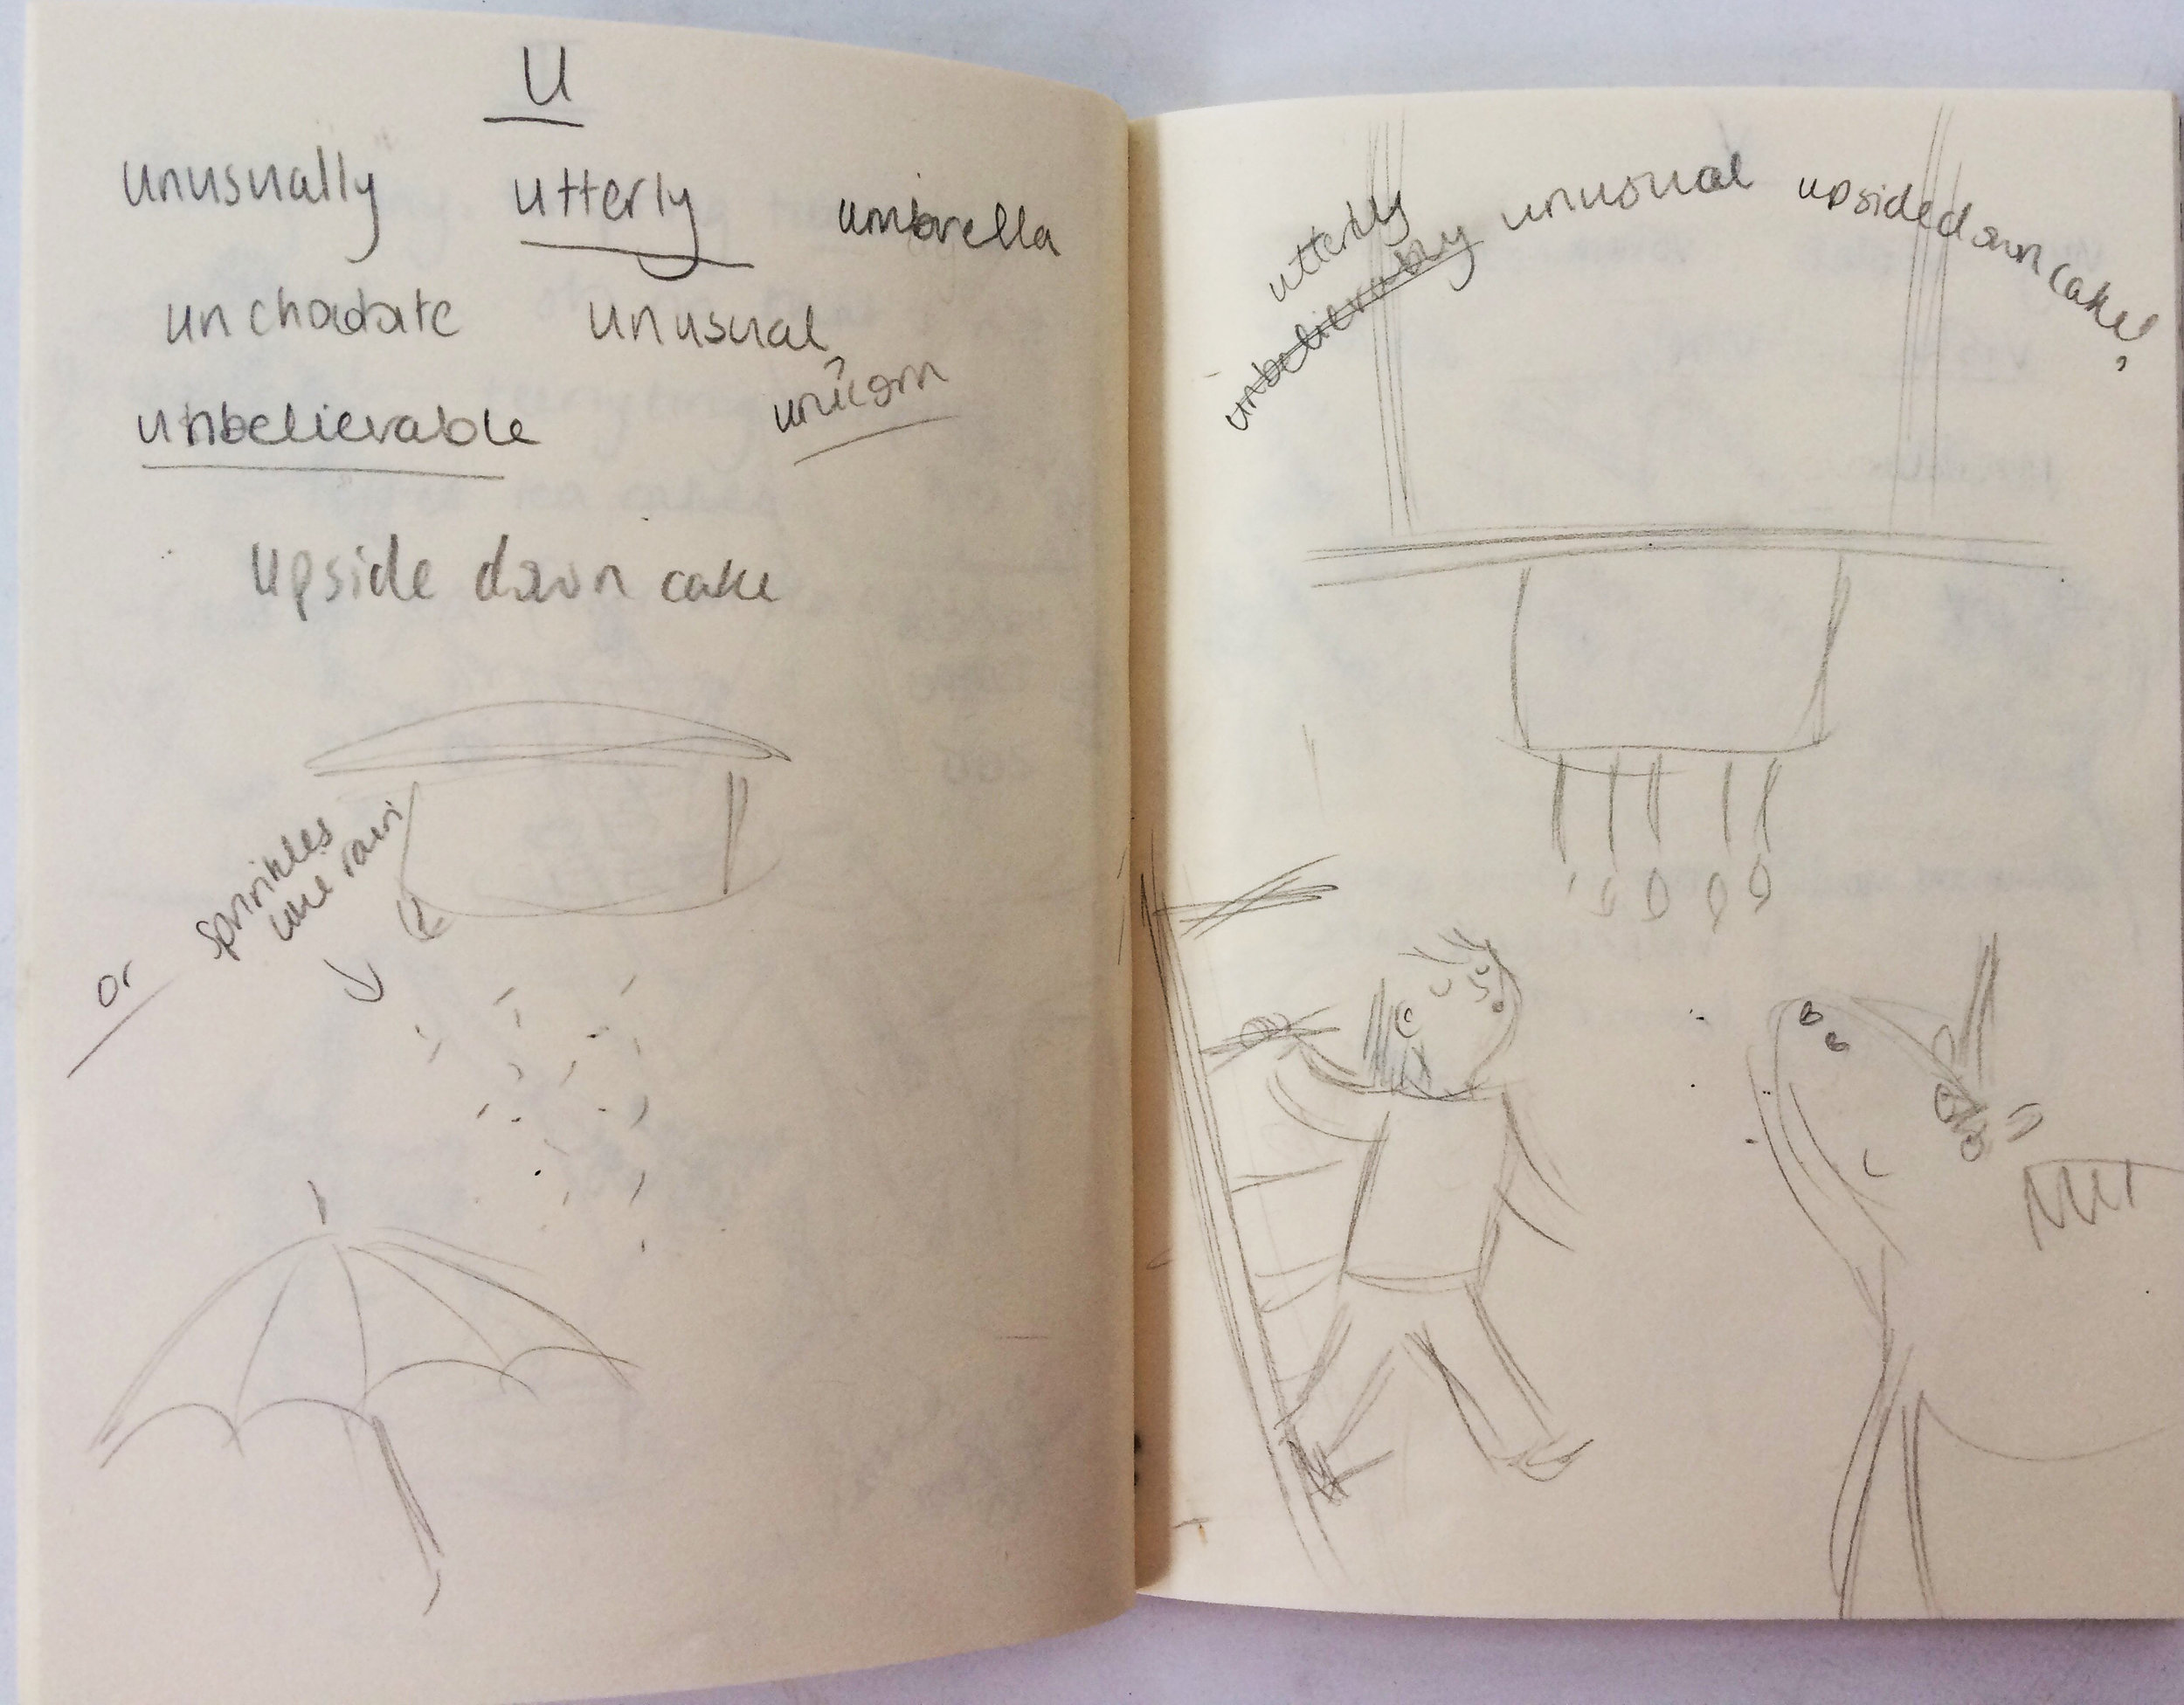 U
unusually utterly umbrella
unusual
unbelievable unicorn?
upside down cake
or sprinkles
like rain
utterly
unbelievably unusual upsidedown cake!